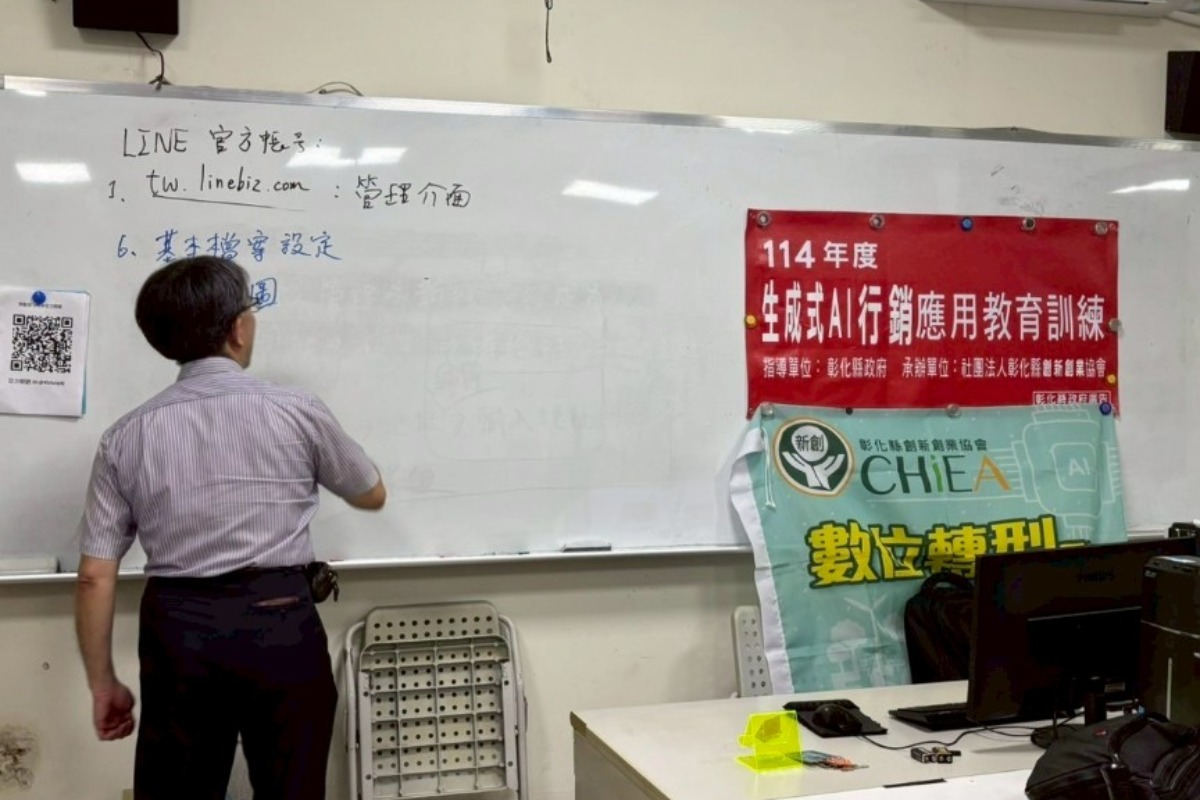 LINE 官方帳号:
1. tw.linebiz.com : 管理介面
6、基本檔案設定
圖
114年度
生成式AI行銷應用教育訓練
指導單位：彰化縣政府 承辦單位：社團法人彰化縣創新創業協會
彰化縣政府廣告
新創
彰化縣創新創業協會
CHiEA
AI
數位轉型
PHILIPS